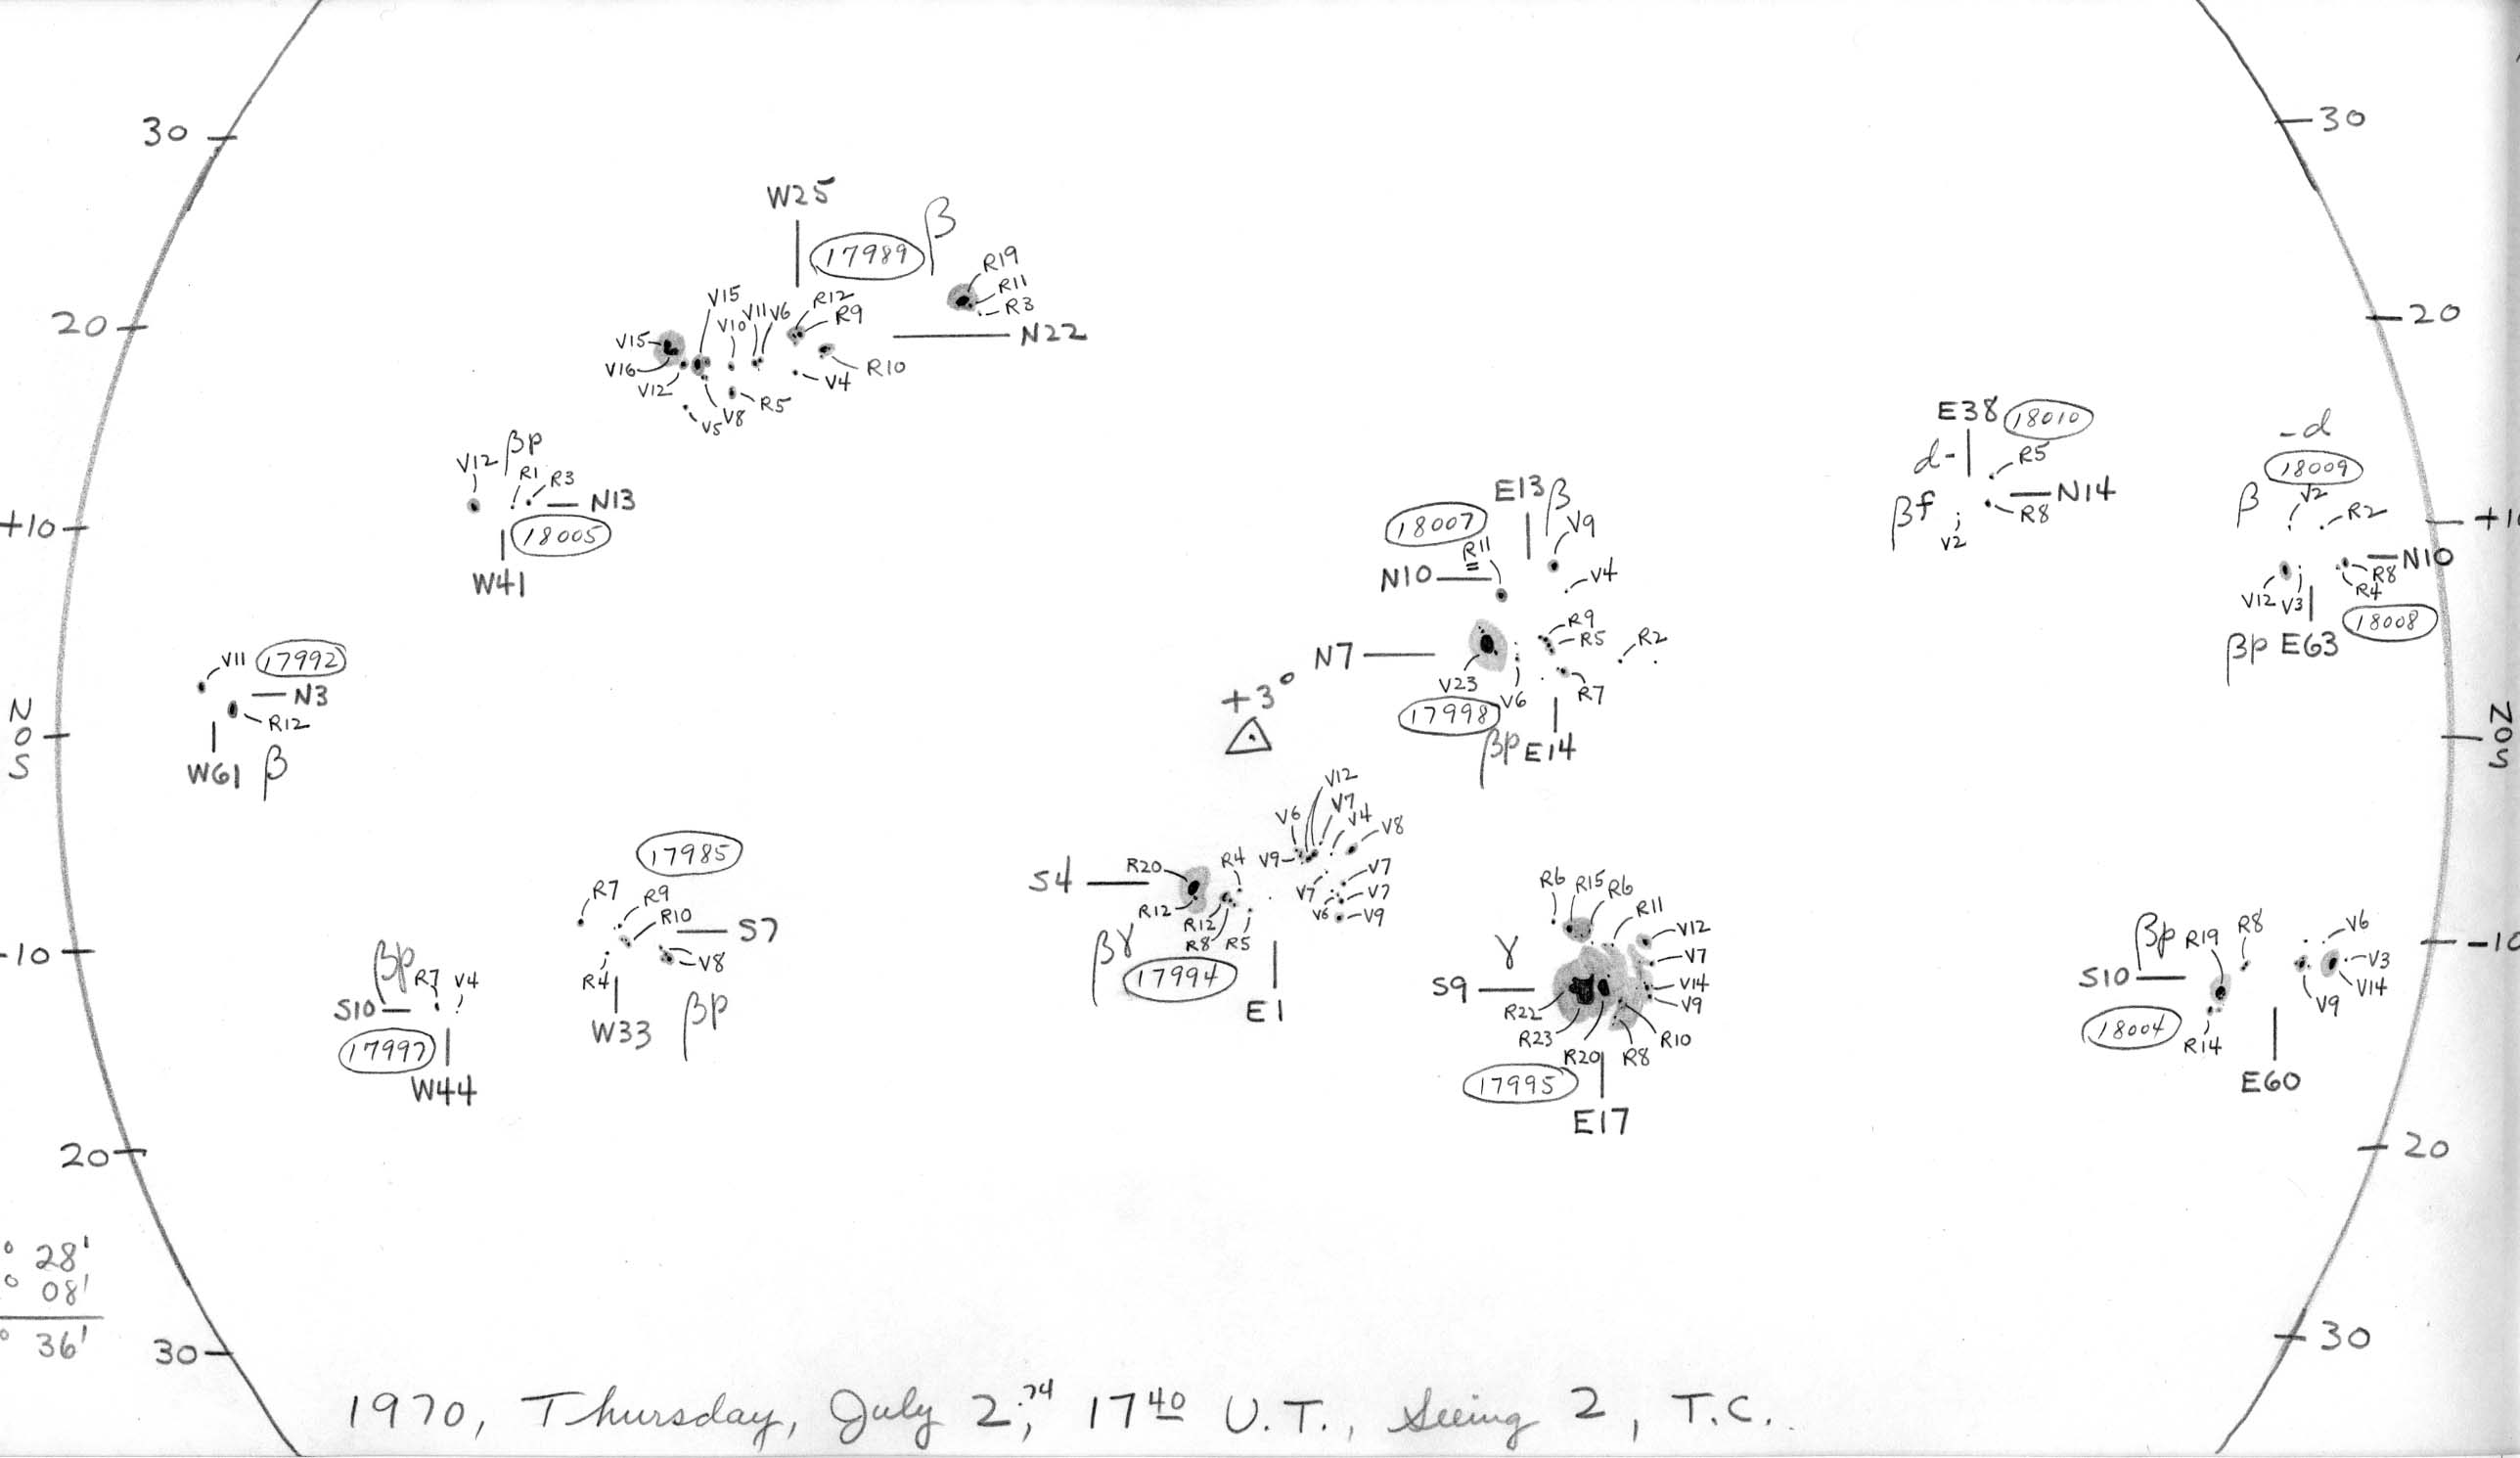 30
30
W25
17989 β
R19
R11
R3
V15
R12
V10 V11 V6
R9
20
V15
N22
20
V16
V12
V4
R10
V5 V8 R5
E38 18010
d-
R5
N14
βf
V2
R8
-d
18009
β
V2
R2
N10
R8
R4
V12 V3
18008
βp E63
V12 βp
R1
R3
N13
18005
W41
+10
+1
E13 β
18007
R11
V9
N10
V4
R9
R5
R2
N7
V23
V6
R7
17998
βp E14
+3°
V11 17992
N3
R12
W61 β
N
0
S
N
0
S
V12
V6
V7
V4
V8
V9
S4
R20
R4
V7
V7
V7
R12
R12
V6
V9
R8 R5
βγ
17994
E1
17985
R7
R9
R10
S7
R4
V8
W33
βp
-10
βp
R7 V4
S10
17997
W44
R6 R15 R6
R11
γ
V12
V7
S9
V14
R22
V9
R23
R10
R20 R8
17995
E17
βp R19 R8
V6
-10
S10
V3
V14
V9
18004
R14
E60
20
20
° 28'
° 08'
° 36'
30
30
1970, Thursday, July 2;⁷⁴ 17⁴⁰ U.T., Seeing 2, T.C.